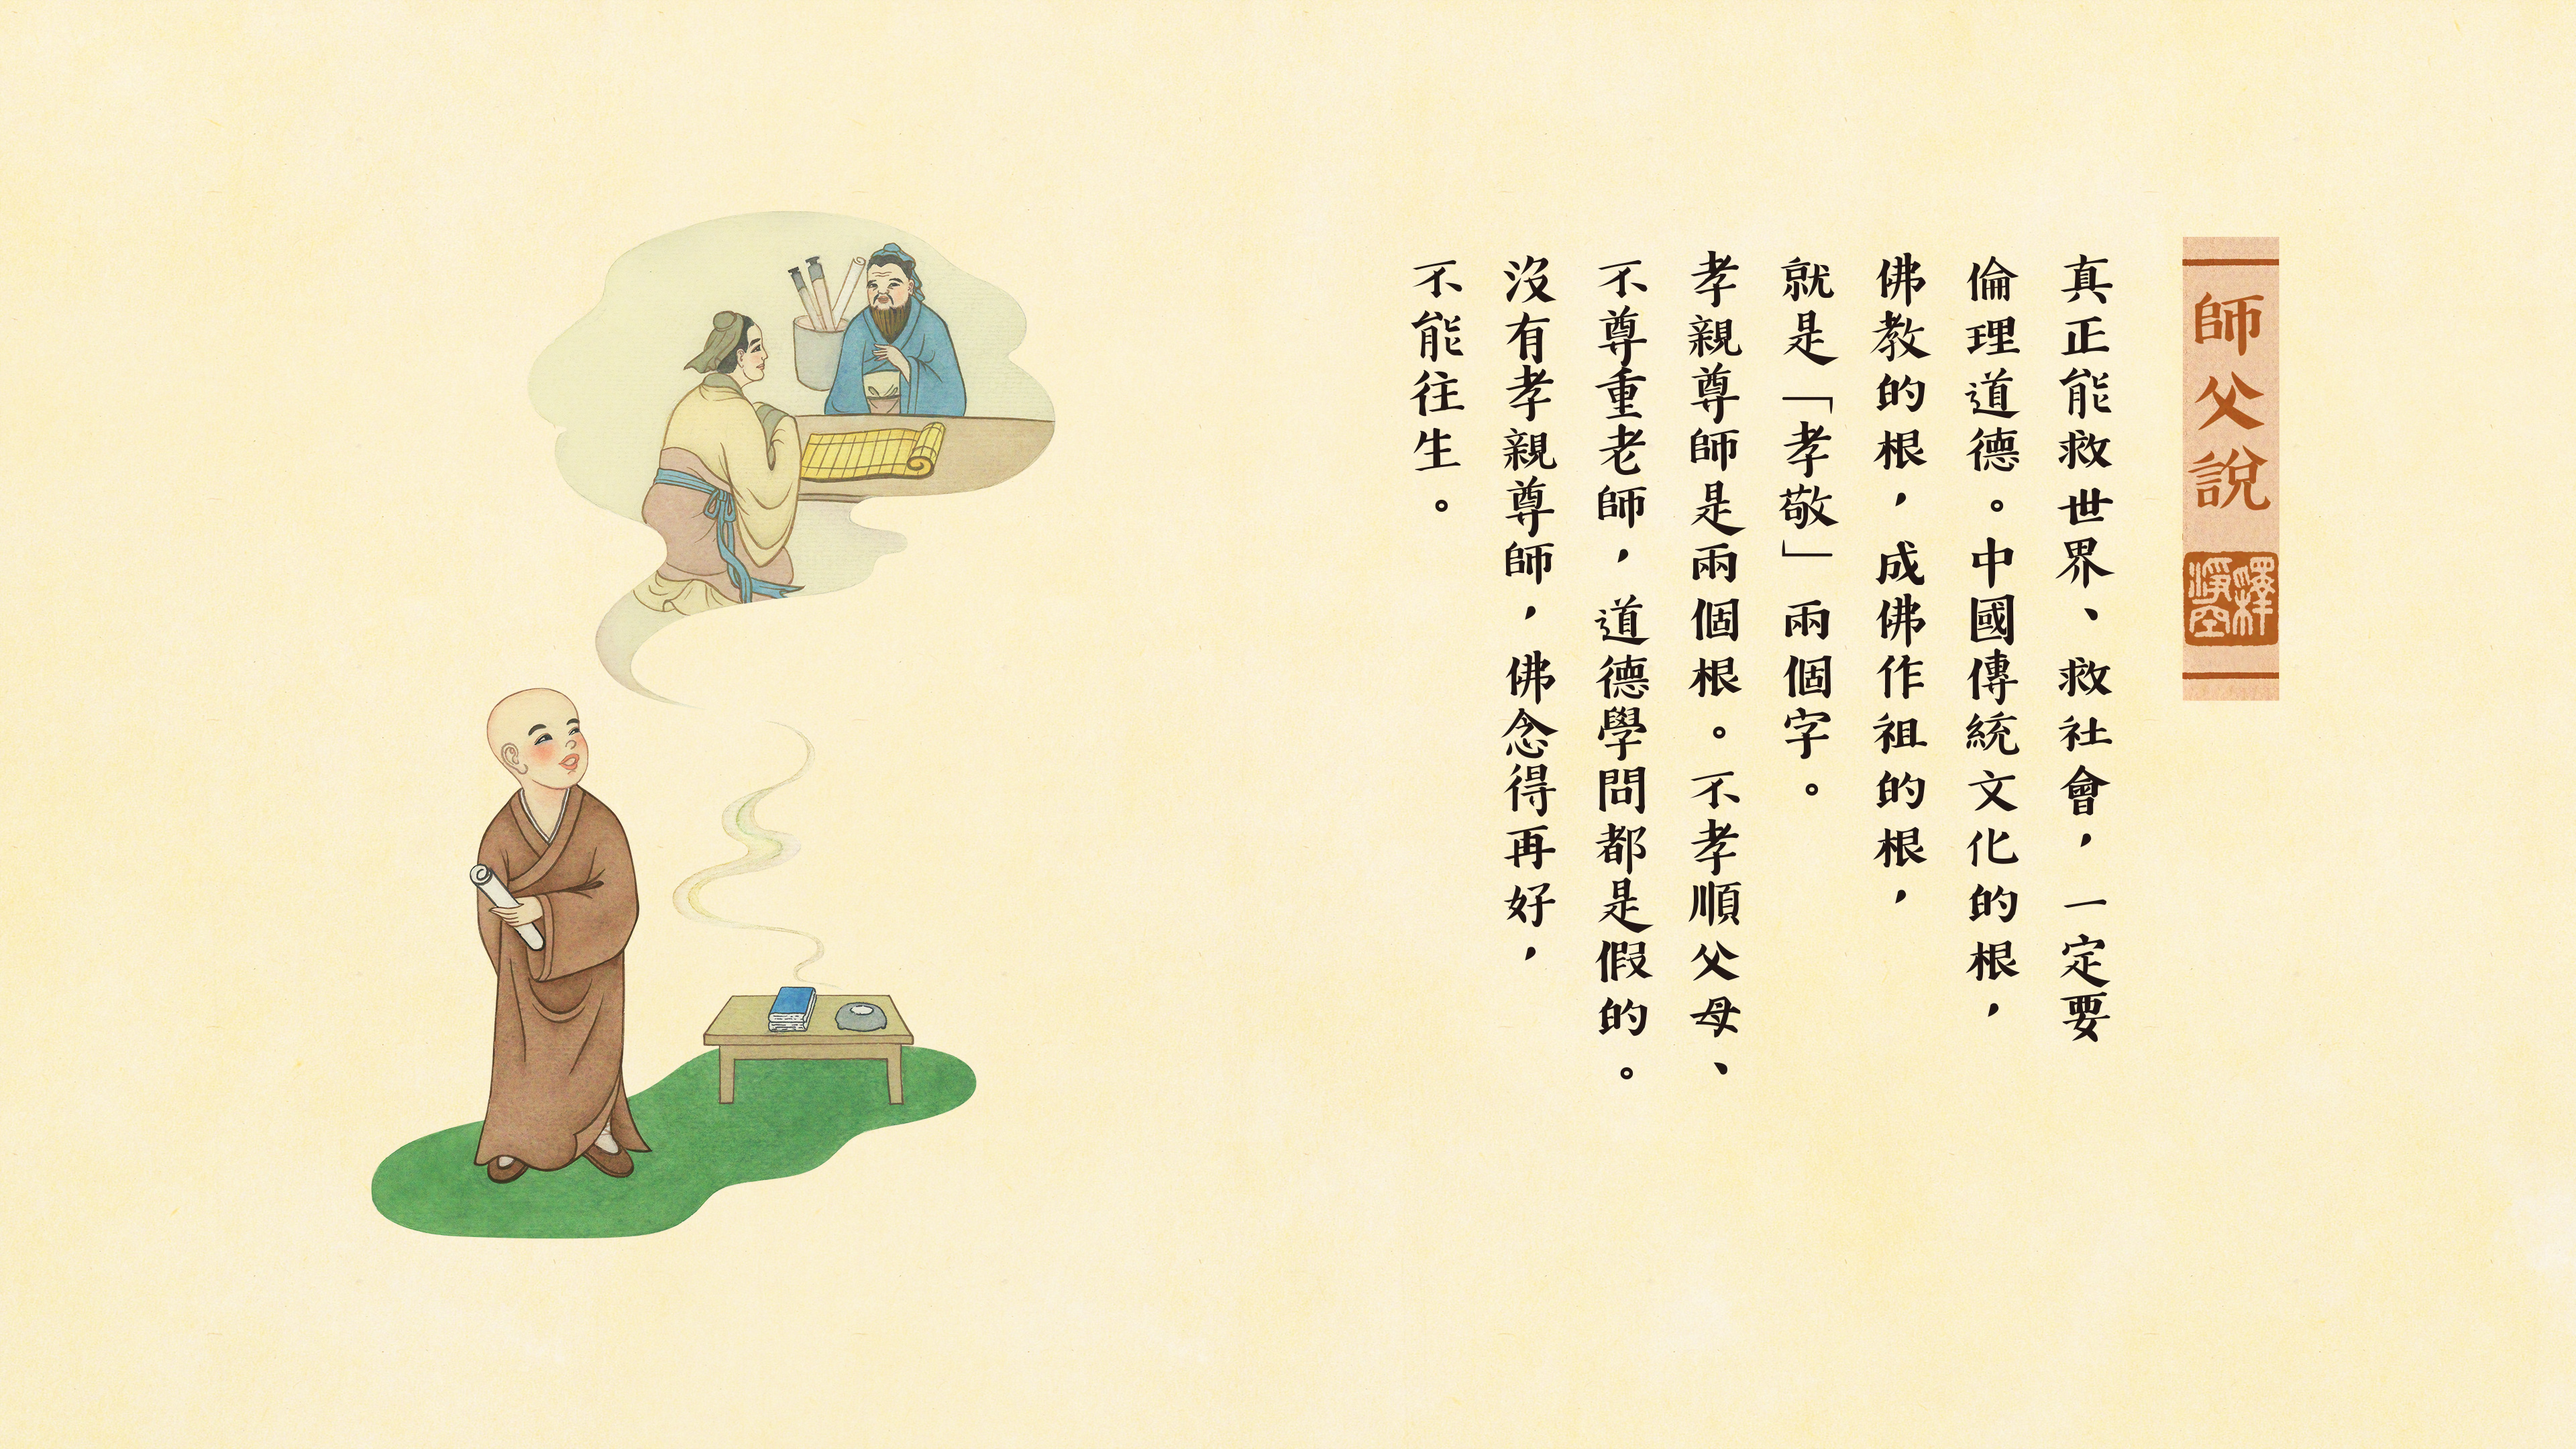 師父說
釋淨空
真正能救世界、救社會，一定要
倫理道德。中國傳統文化的根，
佛教的根，成佛作祖的根，
就是「孝敬」兩個字。
孝親尊師是兩個根。不孝順父母、
不尊重老師，道德學問都是假的。
沒有孝親尊師，佛念得再好，
不能往生。